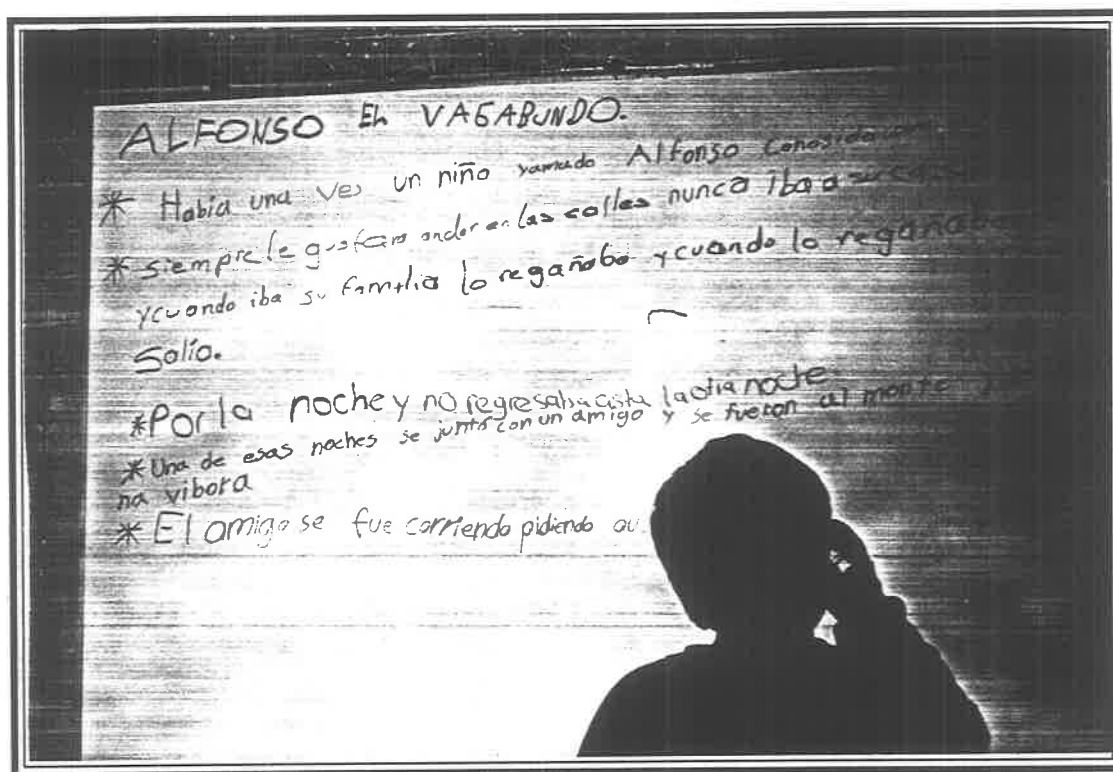 ALFONSO EL VAGABUNDO.
* Habia una ves un niño yamado Alfonso conosido
* siempre le gustaba andar en las calles nunca iba a su casa
y cuando iba su familia lo regañaba y cuando lo regañaba
Salío.
*Por la noche y no regresaba asta la otra noche
* Una de esas noches se juntó con un amigo y se fueron al monte
na vibora
* El amigo se fue corriendo pidiendo au